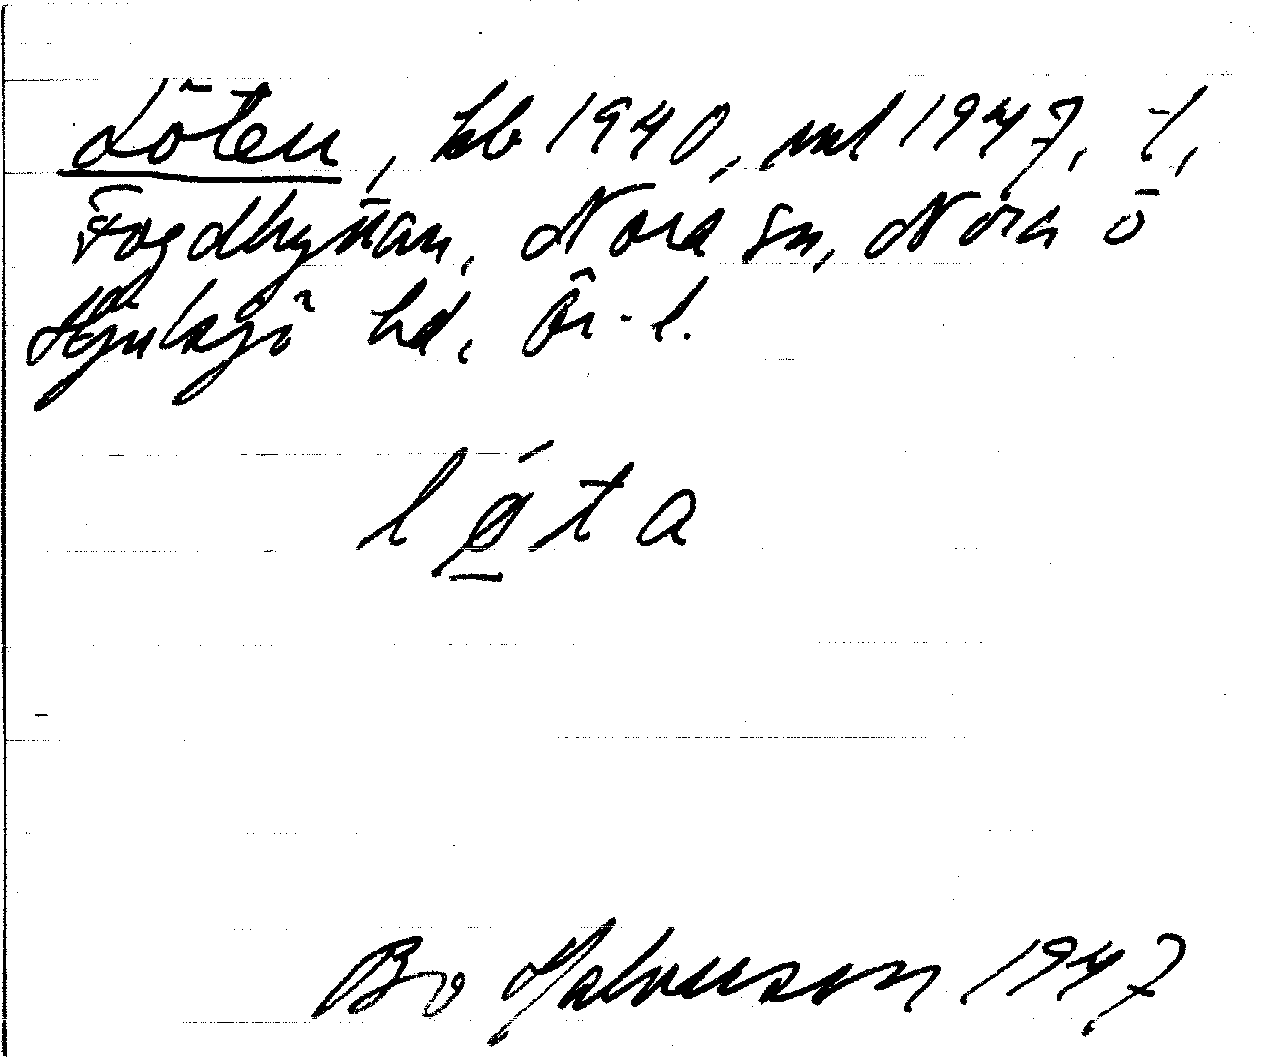 Löten, kb 1940, ml 1947, t,
Fogdhyttan, Nora sn, Nora o
Hjulsjö hd, Ör. l.
lǿta
Bo 1947